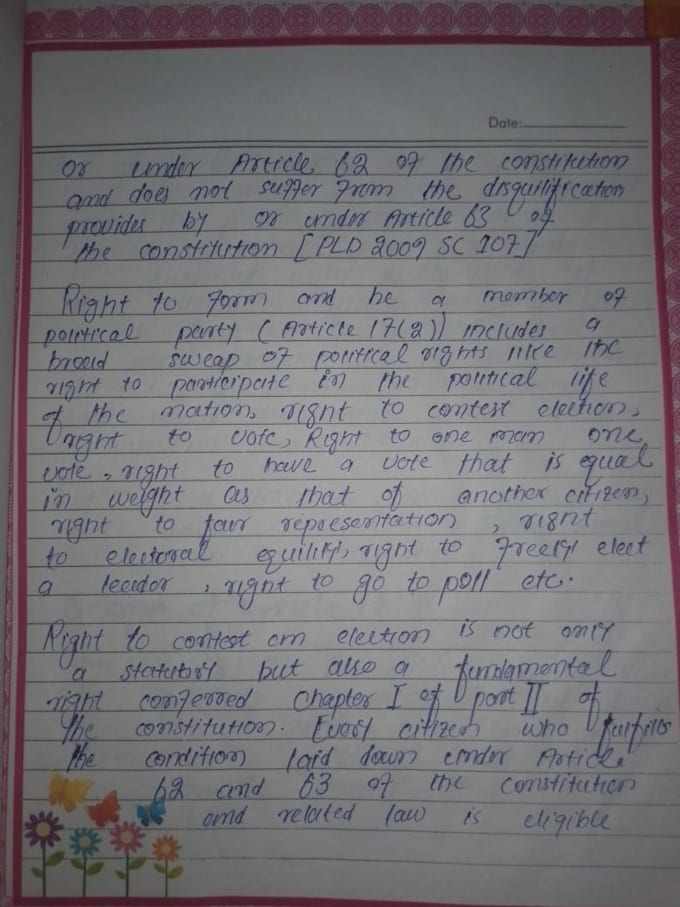 Date:
or under Article 62 of the constitution
and does not suffer from the disquilification
provides by or under Article 63 of
the constitution [PLD 2009 SC 107]
Right to form and be a member of
political party (Article 17(2)) includes a
broad sweap of political rights like the
right to participate in the political life
of the nation, right to contest election,
right to vote, Right to one man one
vote, right to have a vote that is equal
in weight as that of another citizen,
right to fair representation, right
to electoral equility, right to freely elect
a leader, right to go to poll etc.
Right to contest an election is not only
a statutory but also a fundamental
right conferred Chapter I of part II of
the constitution. Every citizen who fulfills
the condition laid down under Article
62 and 63 of the constitution
and related law is eligible